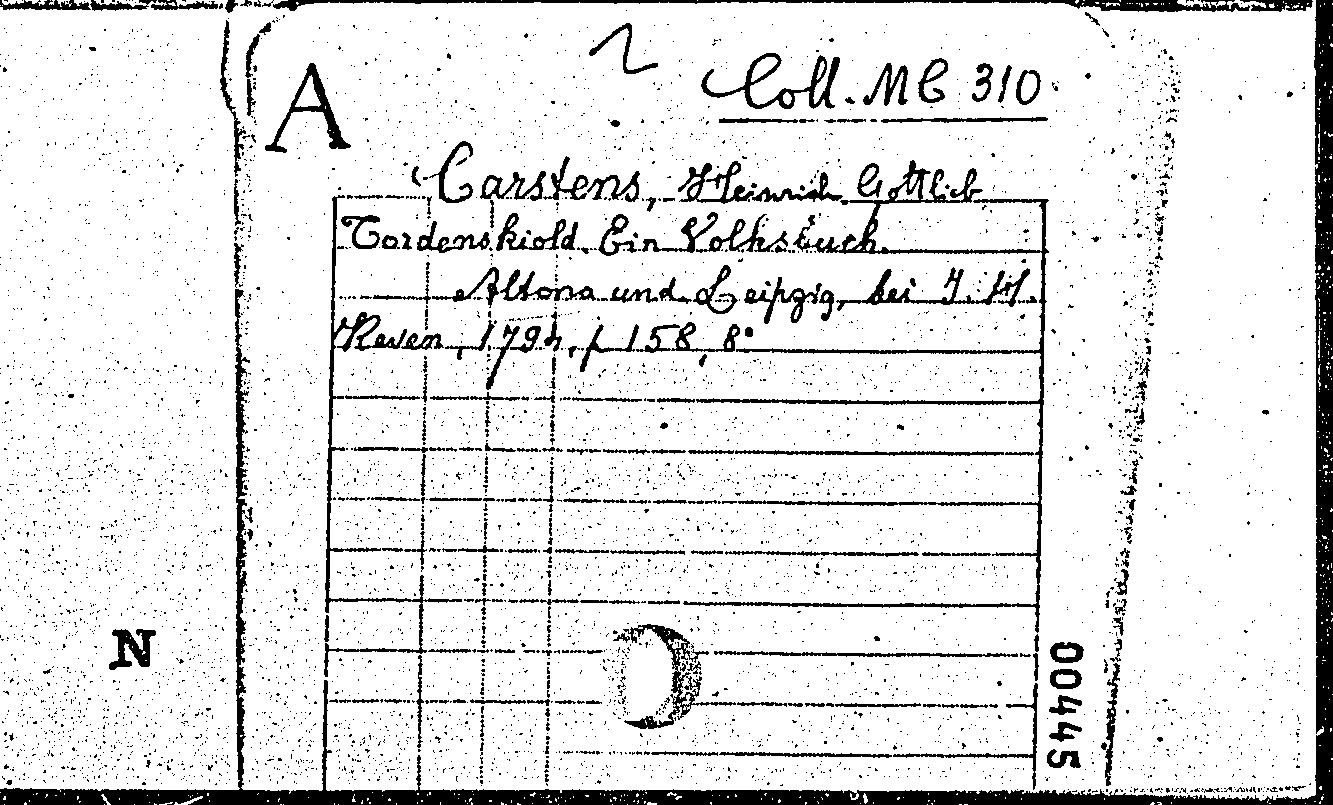 A
Coll. MC 310
Carstens, Heinrich Gottlieb
Tordenskiold. Ein Volksbuch.
Altona und Leipzig, bei J. H.
Kaven, 1794, p 158, 8°
N
00445